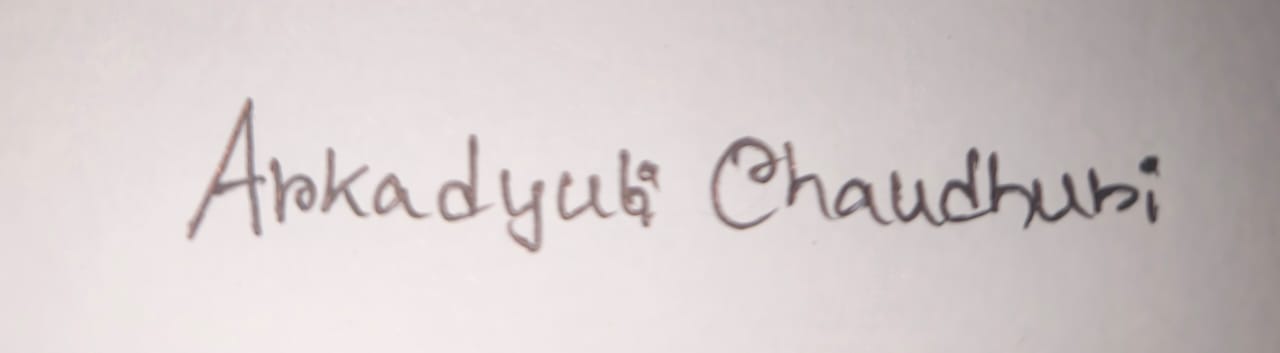 Arkadyuti Chaudhuri